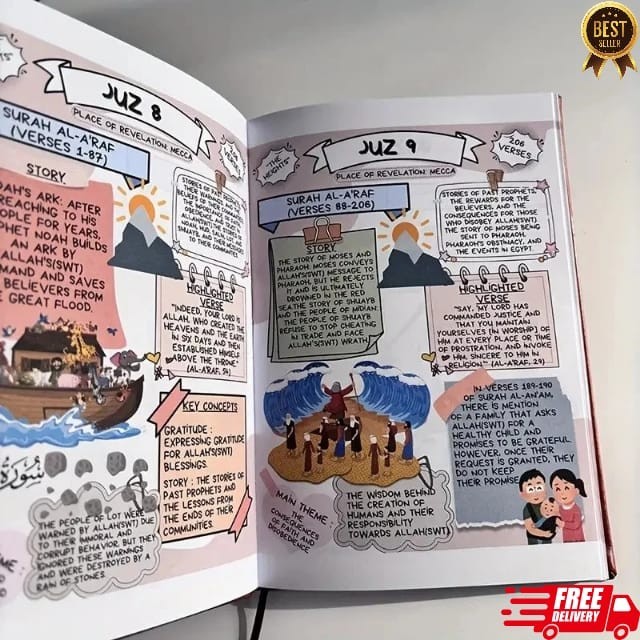 BEST
SELLER
JUZ 8
PLACE OF REVELATION: MECCA
SURAH AL-A'RAF
(VERSES 1-87)
STORY
ARK: AFTER
REACHING TO HIS
OPLE FOR YEARS,
PHET NOAH BUILDS
AN ARK BY
ALLAH'S(SWT)
MAND AND SAVES
BELIEVERS FROM
GREAT FLOOD.
STORIES OF PAST PROPHETS,
HIGHLIGHTED
VERSE
"INDEED, YOUR LORD IS
ALLAH, WHO CREATED THE
HEAVENS AND THE EARTH
IN SIX DAYS AND THEN
ESTABLISHED HIMSELF
ABOVE THE THRONE"
(AL-A'RAF, 54)
KEY CONCEPTS
GRATITUDE :
EXPRESSING GRATITUDE
FOR ALLAH'S(SWT)
BLESSINGS.
STORY : THE STORIES OF
PAST PROPHETS AND
THE LESSONS FROM
THE ENDS OF THEIR
COMMUNITIES.
سورة
THE PEOPLE OF LOT WERE
WARNED BY ALLAH(SWT) DUE
TO THEIR IMMORAL AND
CORRUPT BEHAVIOR, BUT THEY
IGNORED THESE WARNINGS
AND WERE DESTROYED BY A
RAIN OF STONES.
"THE
HEIGHTS"
JUZ 9
PLACE OF REVELATION: MECCA
206
VERSES
SURAH AL-A'RAF
(VERSES 88-206)
STORY
THE STORY OF MOSES AND
PHARAOH: MOSES CONVEYS
ALLAH'S(SWT) MESSAGE TO
PHARAOH, BUT HE REJECTS
IT AND IS ULTIMATELY
DROWNED IN THE RED
SEA.THE STORY OF SHUAYB
AND THE PEOPLE OF MIDIAN:
THE PEOPLE OF SHUAYB
REFUSE TO STOP CHEATING
IN TRADE AND FACE
ALLAH'S(SWT) WRATH.
STORIES OF PAST PROPHETS,
THE REWARDS FOR THE
BELIEVERS, AND THE
CONSEQUENCES FOR THOSE
WHO DISOBEY ALLAH(SWT).
THE STORY OF MOSES BEING
SENT TO PHARAOH,
PHARAOH'S OBSTINACY, AND
THE EVENTS IN EGYPT.
HIGHLIGHTED
VERSE
"SAY, 'MY LORD HAS
COMMANDED JUSTICE AND
THAT YOU MAINTAIN
YOURSELVES [IN WORSHIP] OF
HIM AT EVERY PLACE OR TIME
OF PROSTRATION, AND INVOKE
HIM, SINCERE TO HIM IN
RELIGION" (AL-A'RAF, 29)
IN VERSES 189-190
OF SURAH AL-AN'AM,
THERE IS MENTION
OF A FAMILY THAT ASKS
ALLAH(SWT) FOR A
HEALTHY CHILD AND
PROMISES TO BE GRATEFUL.
HOWEVER, ONCE THEIR
REQUEST IS GRANTED, THEY
DO NOT KEEP
THEIR PROMISE
MAIN THEME :
THE
CONSEQUENCES
OF FAITH AND
DISOBEDIENCE
THE WISDOM BEHIND
THE CREATION OF
HUMANS AND THEIR
RESPONSIBILITY
TOWARDS ALLAH(SWT)
FREE
DELIVERY